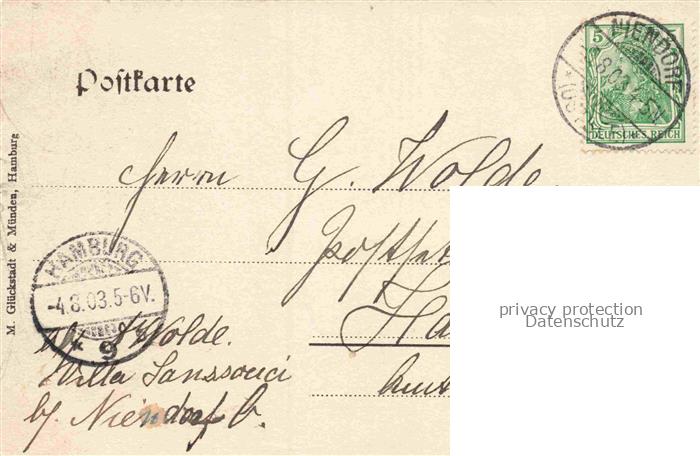 Postkarte
NIENDORF
8.03. 4-5N.
(OSTSEE)
5
DEUTSCHES REICH
Herrn G. Wolde.
HAMBURG
-4.8.03.5-6V.
* 9
M. Glückstadt & Münden, Hamburg
Wolde.
Villa Sanssouci
by Niendorf
privacy protection
Datenschutz